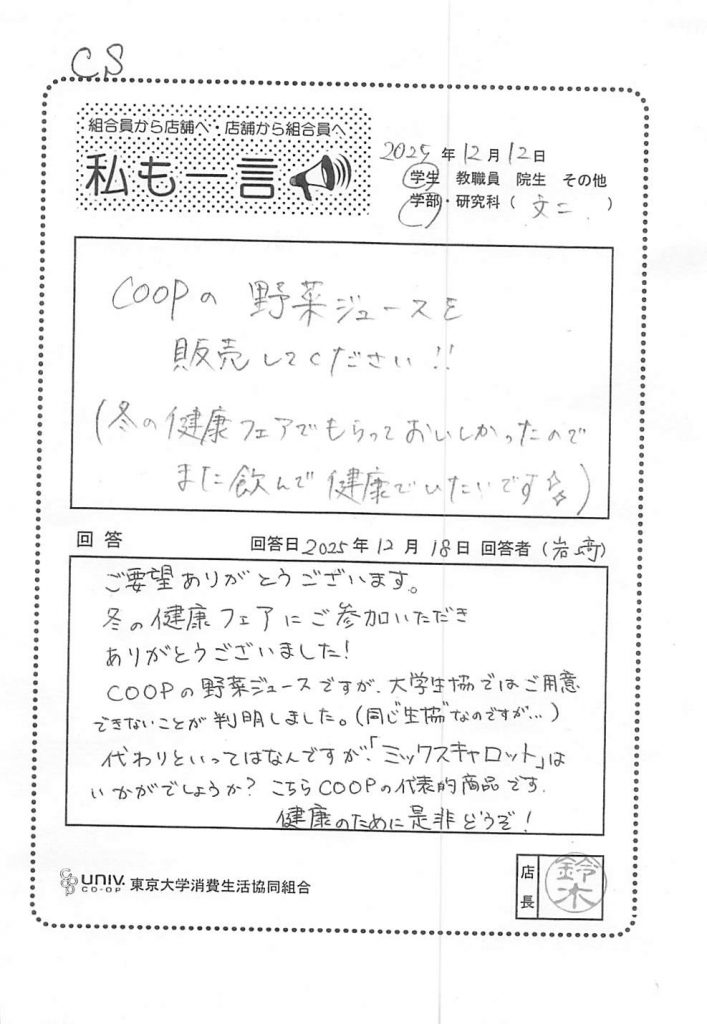 CS
組合員から店舗へ・店舗から組合員へ
私も一言
2025年12月12日
学生 教職員 院生 その他
学部・研究科（ 文二 ）
COOPの 野菜ジュースを
販売してください!!
(冬の健康フェアでもらっておいしかったので
また飲んで健康でいたいです☆☆)
回答 回答日2025年12月18日 回答者（岩﨑）
ご要望ありがとうございます。
冬の健康フェアにご参加いただき
ありがとうございました!
COOPの野菜ジュースですが、大学生協ではご用意
できないことが判明しました。(同じ"生協"なのですが…)
代わりといってはなんですが、「ミックスキャロット」は
いかがでしょうか? こちらCOOPの代表的商品です.
健康のために是非どうぞ!
UNIV. CO-OP 東京大学消費生活協同組合
店長 鈴木